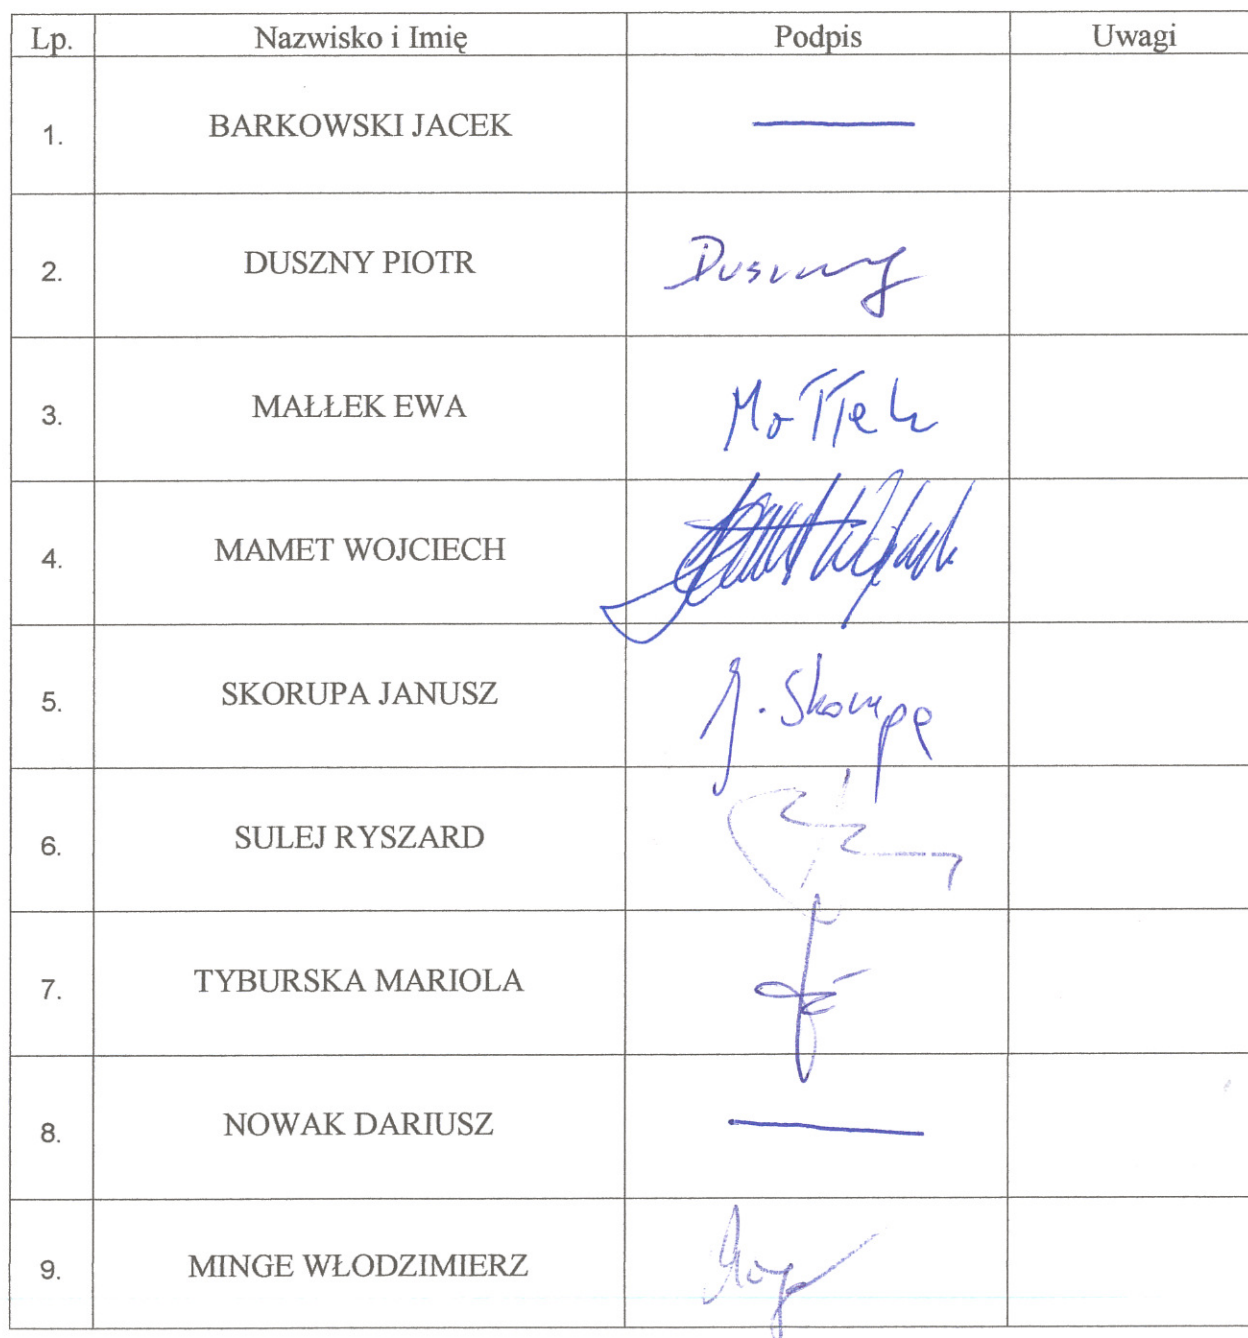 Lp. Nazwisko i Imię Podpis Uwagi
1. BARKOWSKI JACEK
2. DUSZNY PIOTR Duszny
3. MAŁŁEK EWA Małłek
4. MAMET WOJCIECH
5. SKORUPA JANUSZ J. Skorupa
6. SULEJ RYSZARD
7. TYBURSKA MARIOLA
8. NOWAK DARIUSZ
9. MINGE WŁODZIMIERZ